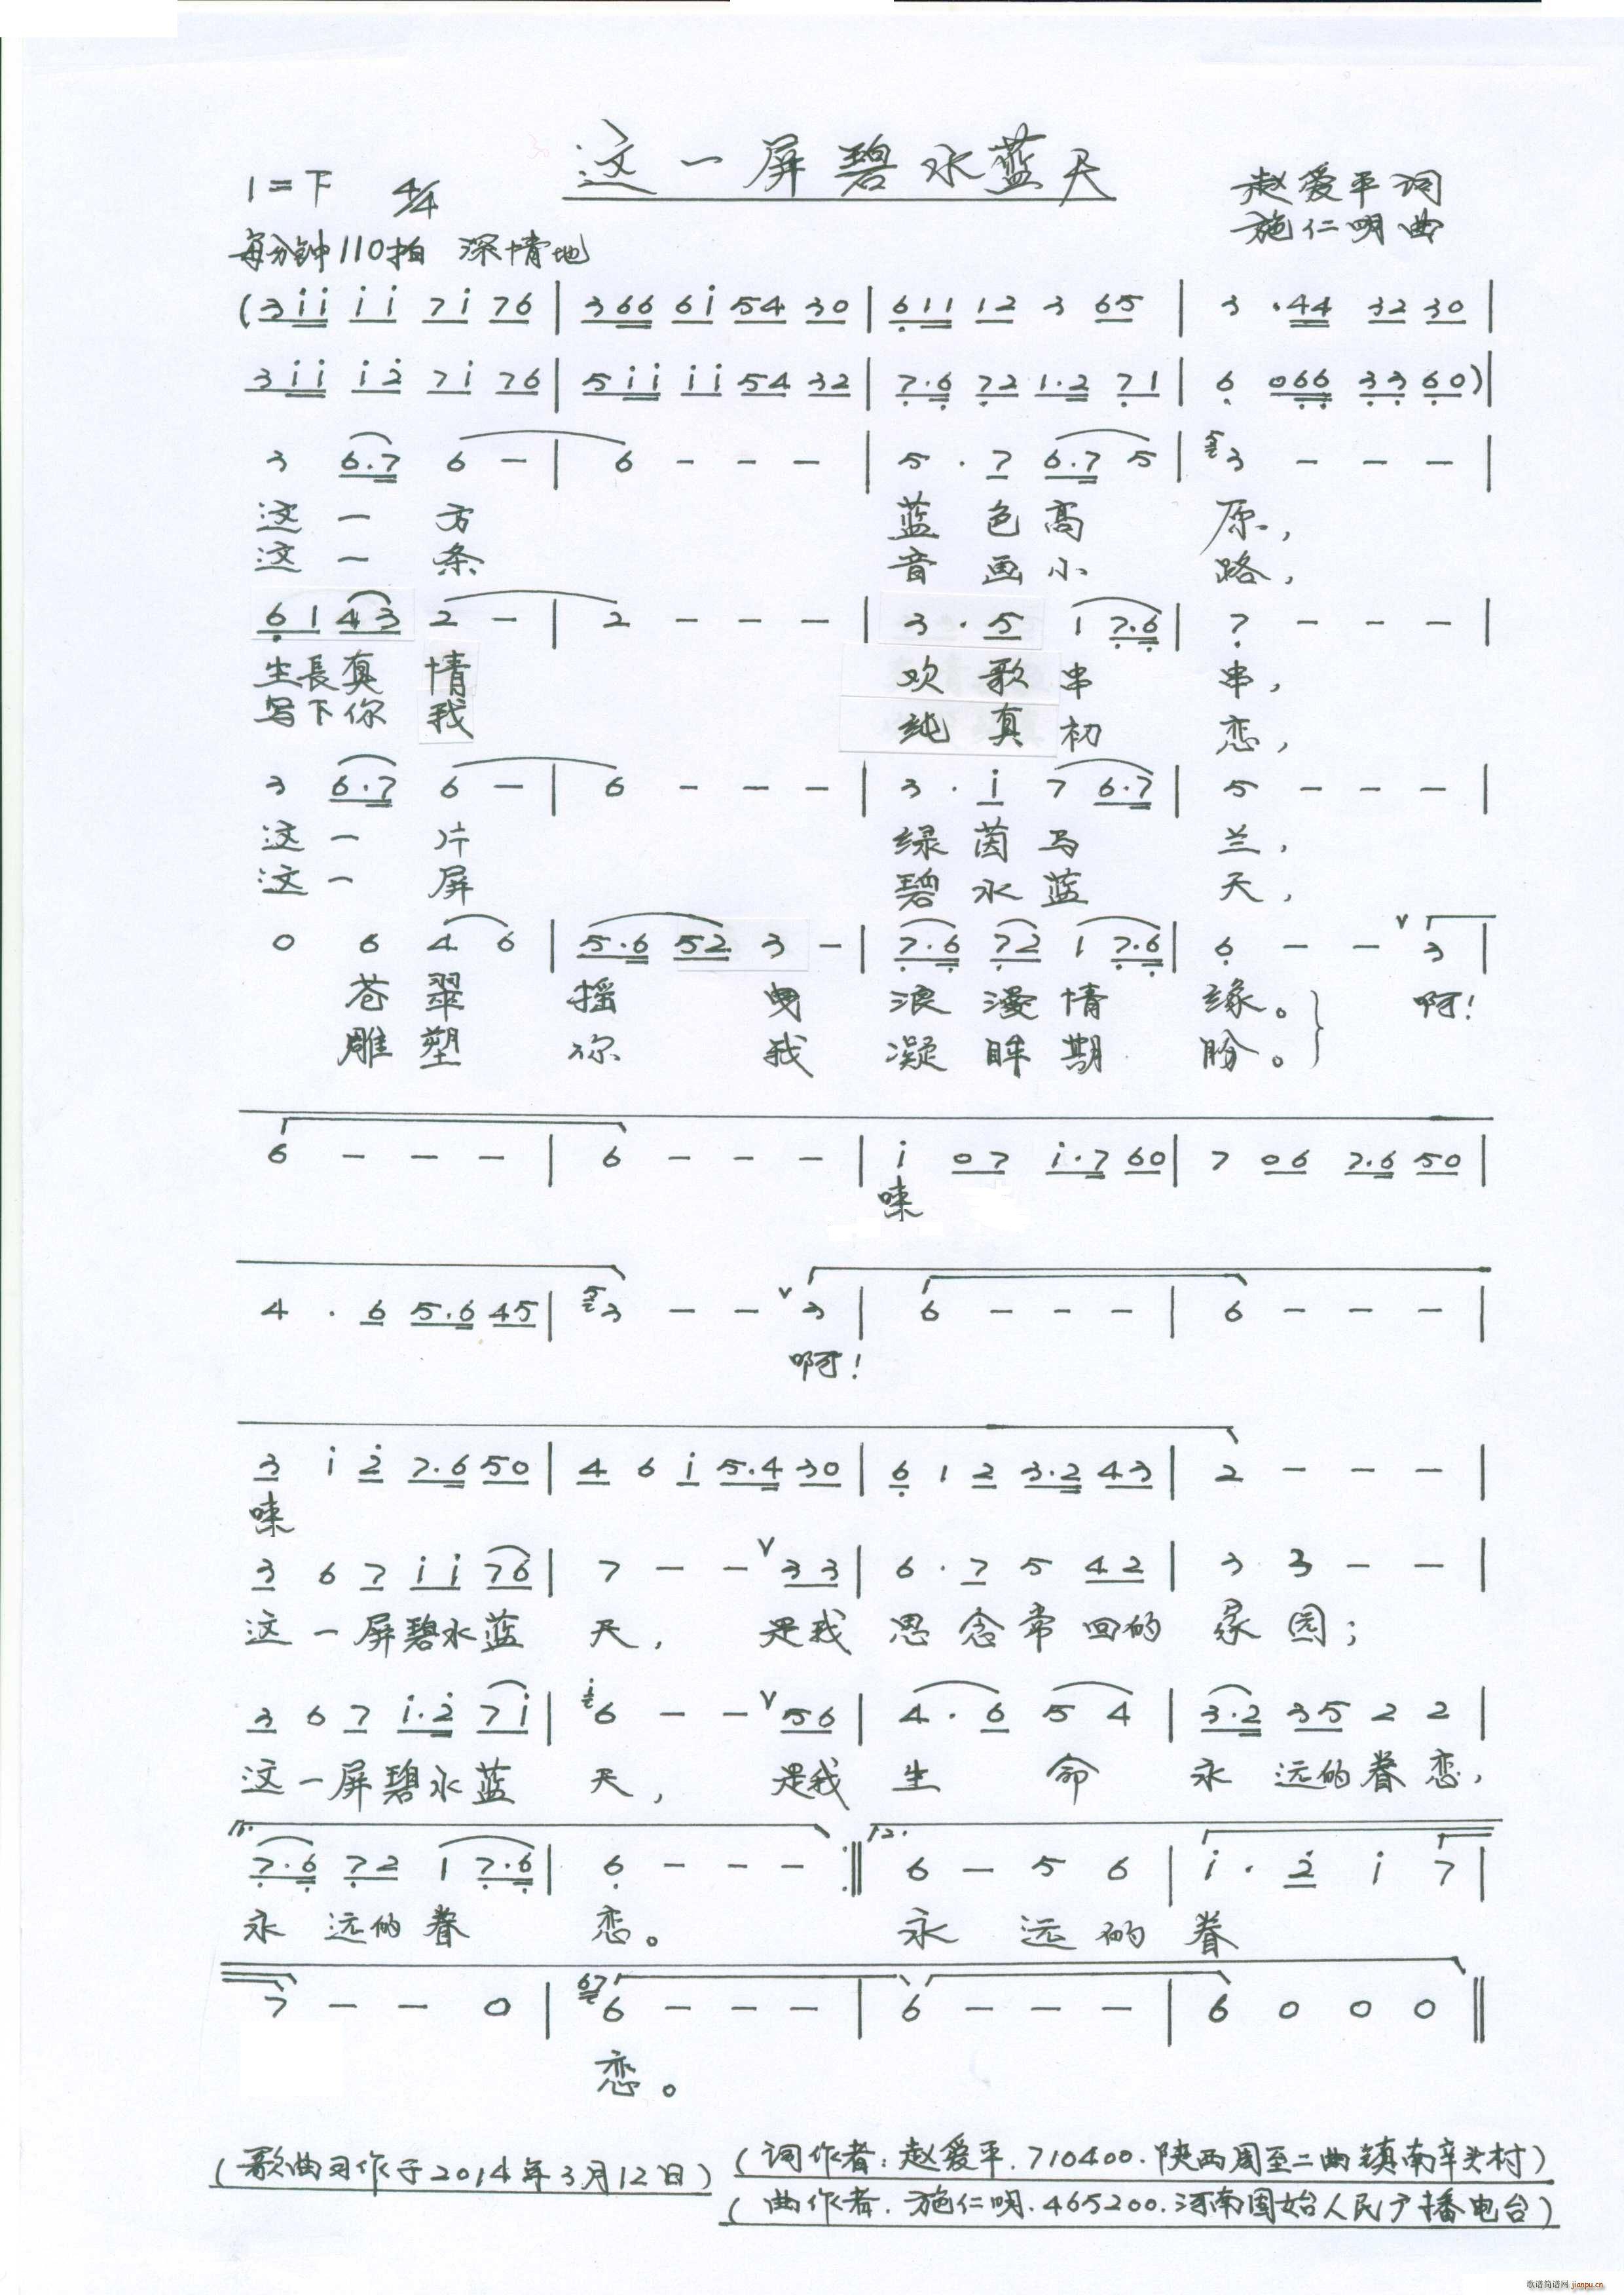 这一屏碧水蓝天
1=下 4/4
赵爱平词
施仁明曲
每分钟110拍 深情地
(3i̇i̇ i̇i̇ 7i̇ 76 | 366 6i̇ 54 30 | 6̣11 12 3 65 | 3 ·44 32 30 |
3i̇i̇ i̇2̇ 7i̇ 76 | 5i̇i̇ i̇i̇ 54 32 | 7̣·6̣ 7̣2 1·2 7̣1 | 6̣ 06̣6̣ 3̣3̣ 6̣0) |
3 6·7 6 — | 6 — — — | 5 · 7 6·7 5 | 5 3 — — — |
这 一 方 蓝 色 高 原，
这 一 条 音 画 小 路，
6̣1 43 2 — | 2 — — — | 3 · 5 1 7̣·6̣ | 7̣ — — — |
生長真 情 欢 歌 串 串，
写下你 我 纯 真 初 恋，
3 6·7 6 — | 6 — — — | 3 · i̇ 7 6·7 | 5 — — — |
这 一 片 绿 茵 马 兰，
这 一 屏 碧 水 蓝 天，
0 6 4 6 | 5·6 52 3 — | 7̣·6̣ 7̣2 1 7̣·6̣ | 6̣ — — ∨ 3 |
苍 翠 摇 曳 浪 漫 情 缘。 啊！
雕 塑 你 我 凝 眸 期 盼。
6 — — — | 6 — — — | i̇ 07 i̇·7 60 | 7 06 7·6 50 |
唻
4 · 6 5·6 45 | 5 3 — — ∨ 3 | 6 — — — | 6 — — — |
啊！
3 i̇ 2̇ 7·6 50 | 4 6 i̇ 5·4 30 | 6̣ 1 2 3·2 43 | 2 — — — |
唻
3 6 7 i̇ i̇ 76 | 7 — — ∨ 33 | 6 · 7 5 42 | 3 3 — — |
这一屏碧水蓝 天， 是我 思 念 常 回的 家 园；
3 6 7 i̇·2̇ 7i̇ | i̇ 6 — — ∨ 56 | 4 · 6 5 4 | 3·2 35 2 2 |
这一屏碧水蓝 天， 是我 生 命 永 远的眷 恋，
1.
7̣·6̣ 7̣2 1 7̣·6̣ | 6̣ — — — :‖ 2. 6 — 5 6 | i̇ · 2̇ i̇ 7 |
永 远的 眷 恋。 永 远 的 眷
7 — — 0 | 67 6 — — — | 6 — — — | 6 0 0 0 ‖
恋。
(歌曲习作于2014年3月12日)
(词作者：赵爱平.710400.陕西周至二曲镇南辛头村)
(曲作者.施仁明.465200.河南固始人民广播电台)
歌谱简谱网 jianpu.cn